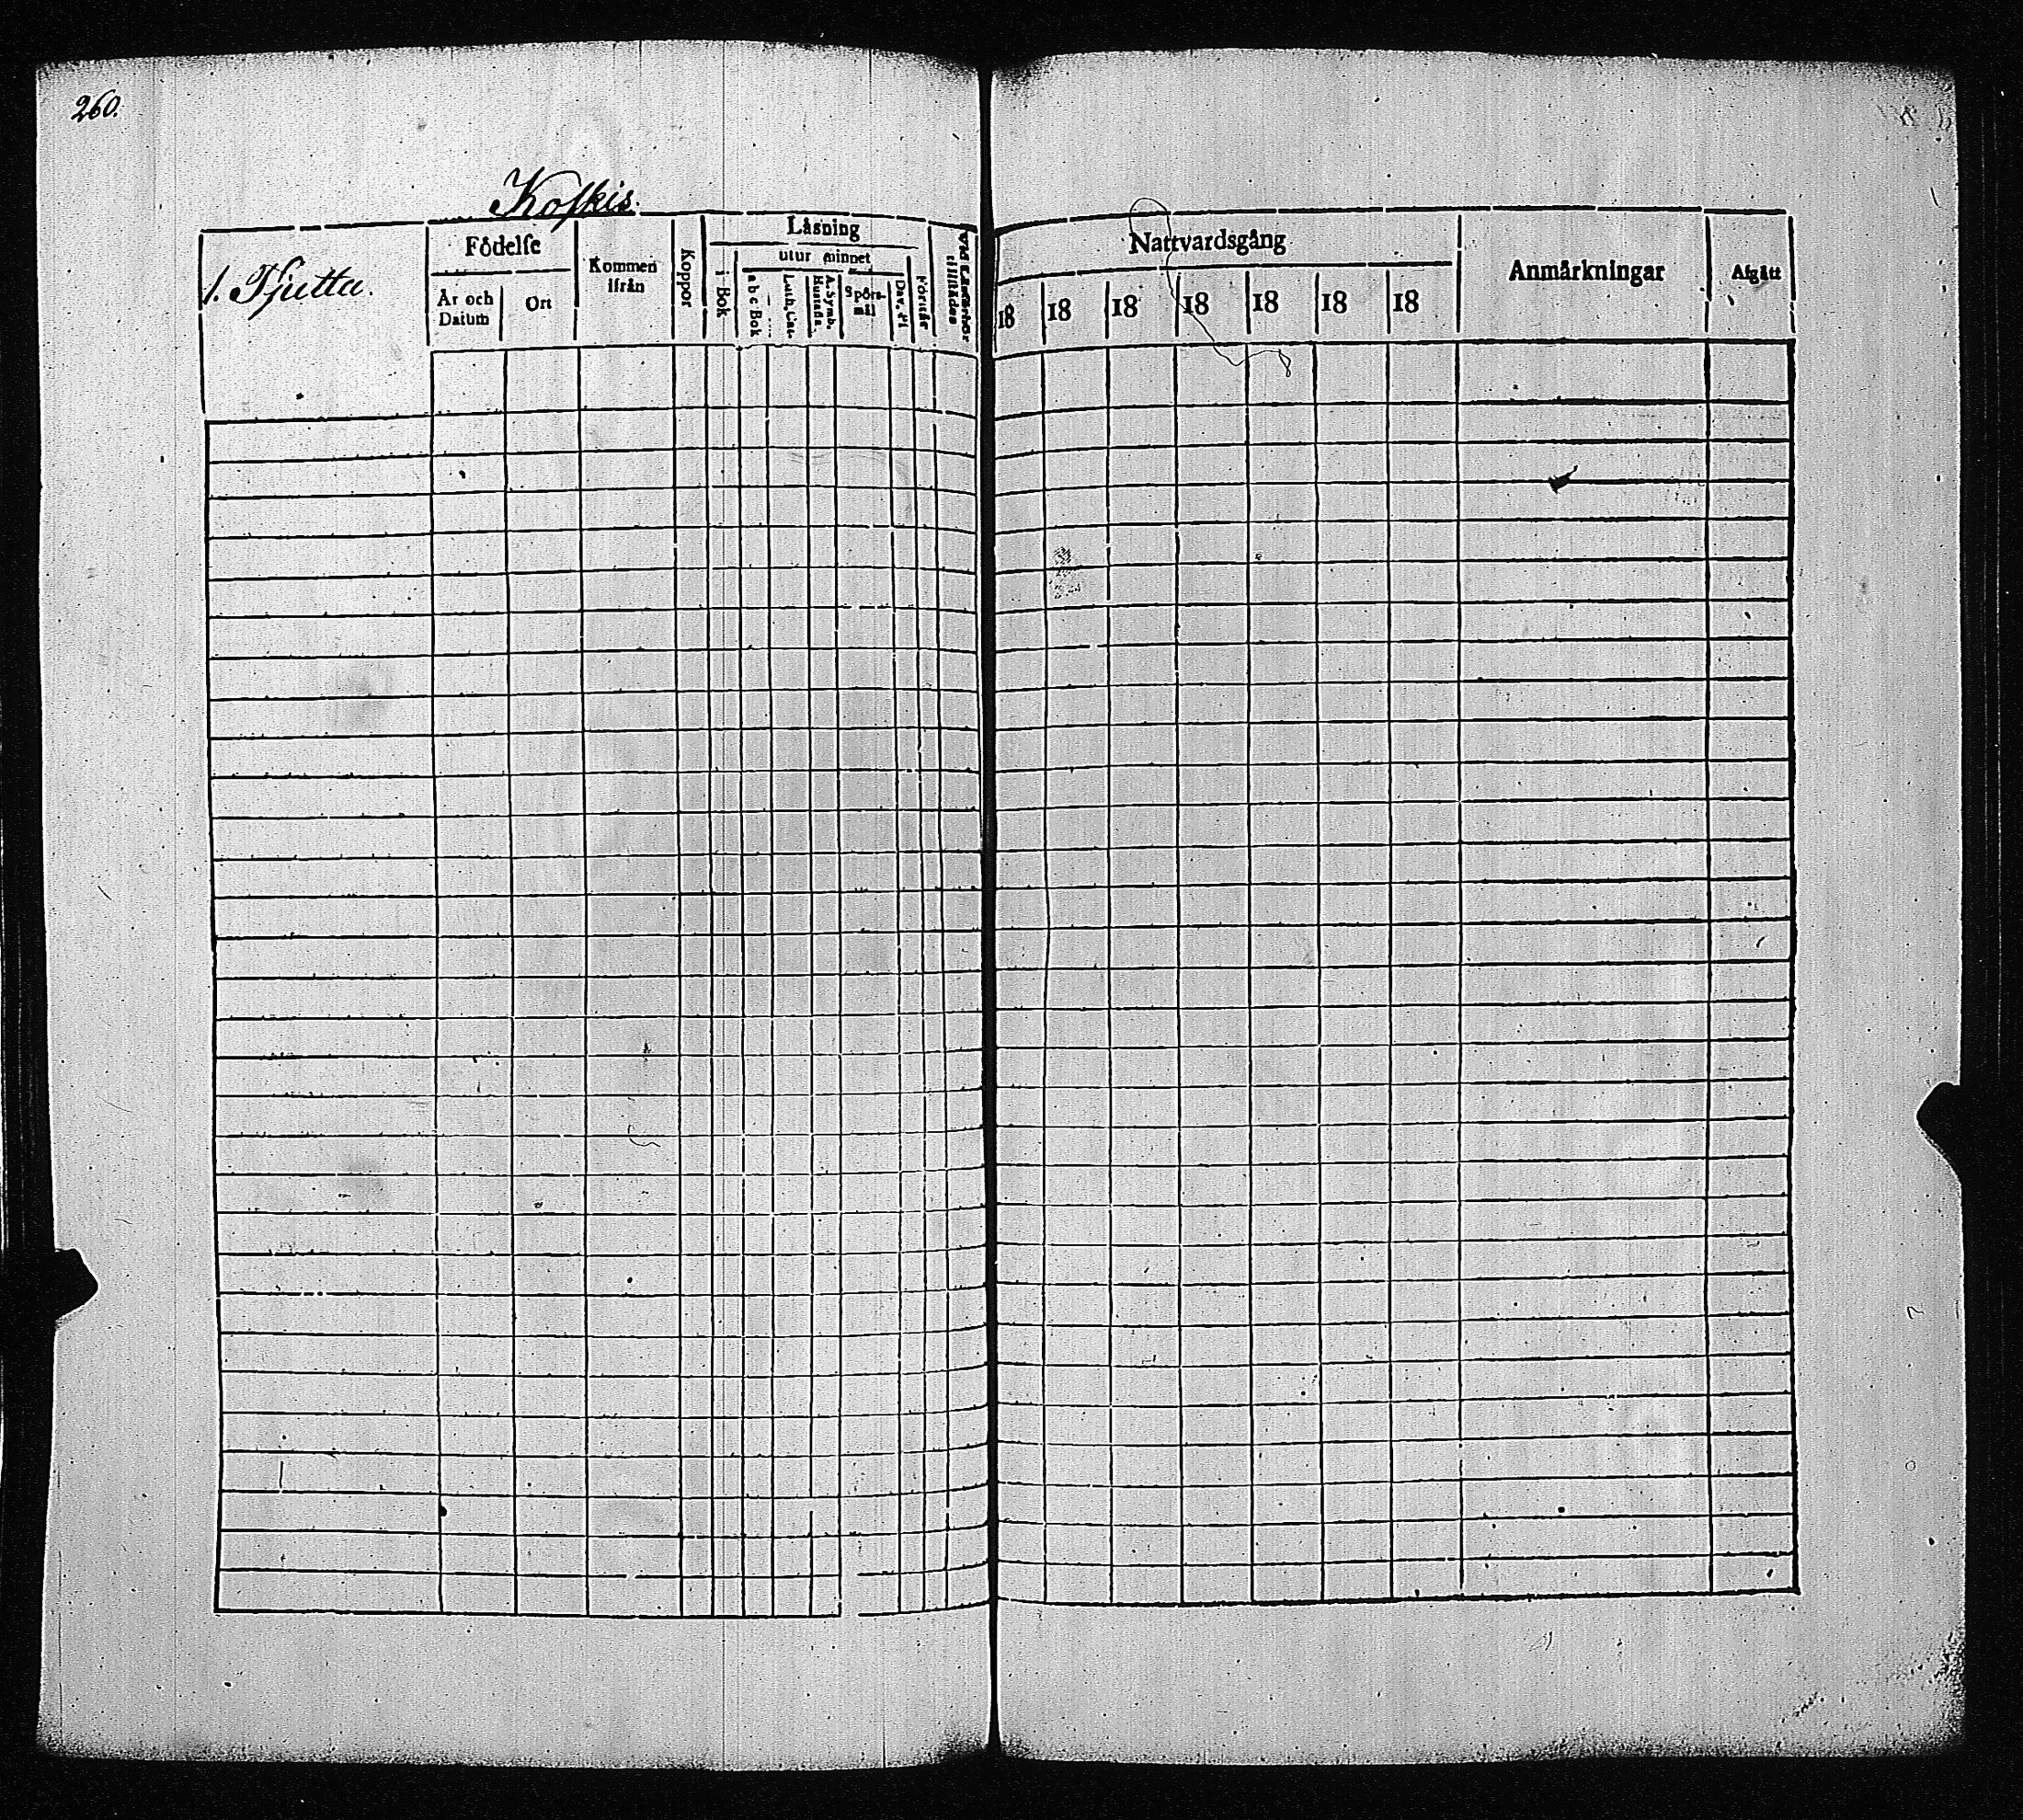 260.
Koſkis.
1. Tjutta.
Födelſe
År och Datum
Ort
Kommen ifrån
Koppor
Läsning
i Bok
utur minnet
a b c Bok
Luth. Cat.
A. Symb. Hustafla
Spörs-
mål
Dav. Ps
Förstår
Nattvardsgång
18 18 18 18 18 18 18
Anmärkningar
Afgått